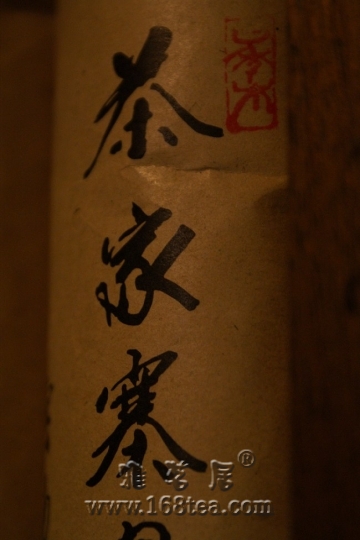 茶家寨
雅茗居®
www.168tea.com